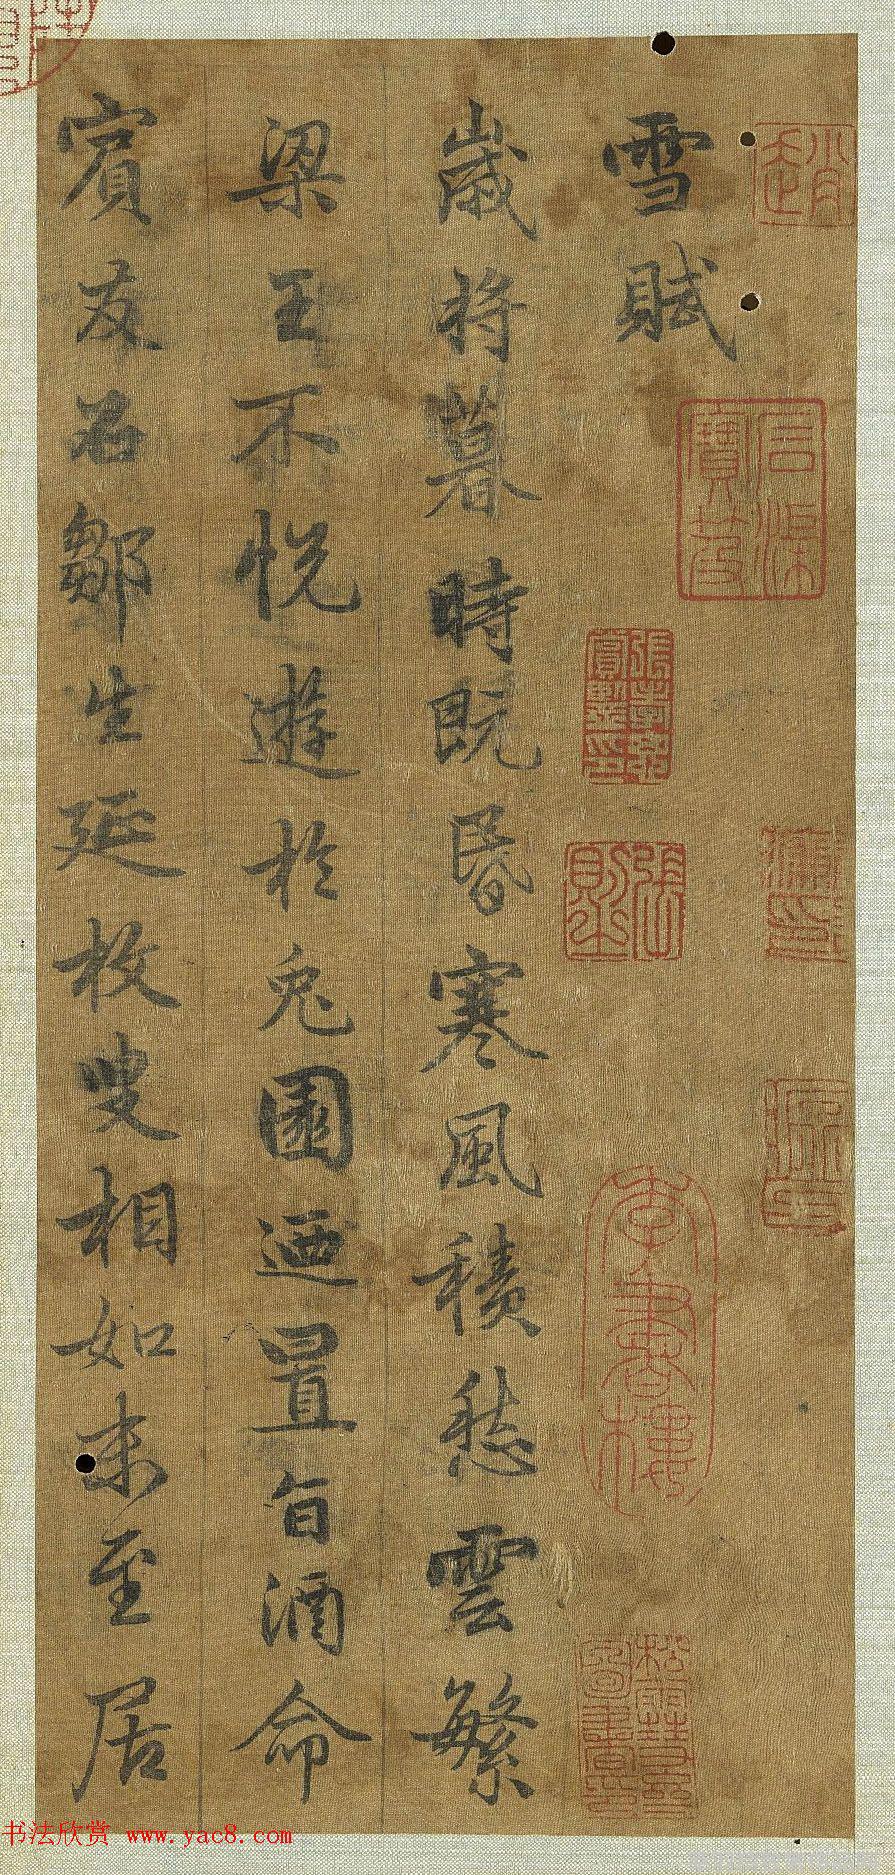 雪賦
歲将暮時既昏寒風積愁雲繁
梁王不悅遊於兔園迺置旨酒命
賓友召鄒生延枚叟相如末至居
信深寶蔡
張則之
李書樓
书法欣赏 www.yac8.com